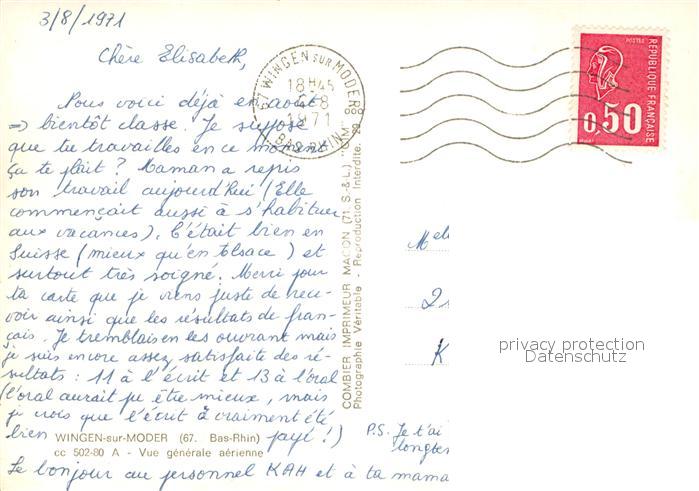 3/8/1971
Chère Elisabeth,
Nous voici déjà en août
=> bientôt classe. Je suppose
que tu travailles en ce moment
ça te plait ? Maman a repris
son travail aujourd'hui (Elle
commençait aussi à s'habituer
aux vacances). C'était bien en
Suisse (mieux qu'en Alsace) et
surtout très soigné. Merci pour
ta carte que je viens juste de rece-
voir ainsi que les résultats de fran-
çais. Je tremblais en les ouvrant mais
je suis encore assez satisfaite des ré-
sultats : 11 à l'écrit et 13 à l'oral
(l'oral aurait pu être mieux, mais
je crois que l'écrit a vraiment été
bien payé !)
WINGEN-sur-MODER (67. Bas-Rhin)
cc 502-80 A - Vue générale aérienne
Le bonjour au personnel KAH et à ta mama
P.S. Je t'ai
longte
COMBIER IMPRIMEUR MACON (71. S.-&-L.) "CIM"
Photographie Véritable - Reproduction Interdite.
WINGEN SUR MODER
18H45
4-8
1971
BAS RHIN
POSTES
REPUBLIQUE FRANÇAISE
0,50
Me
K
privacy protection
Datenschutz